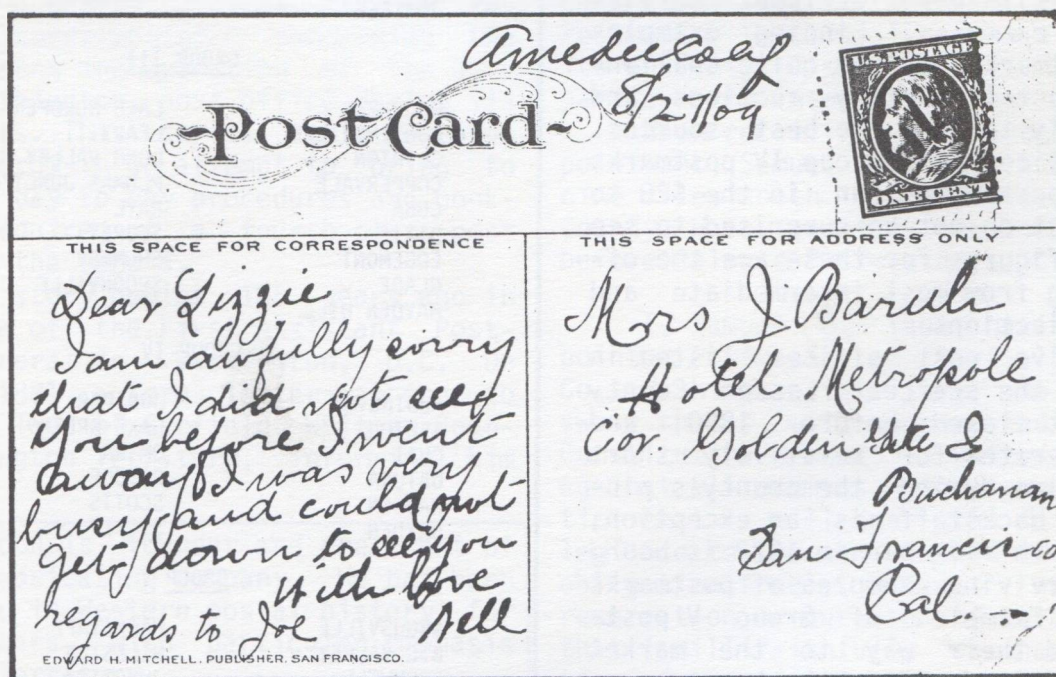 Amedee Cal
8/27/09
Post Card
U.S. POSTAGE
ONE CENT
THIS SPACE FOR CORRESPONDENCE
Dear Lizzie,
I am awfully sorry
that I did not see
you before I went
away I was very
busy and could not
get down to see you
With love
regards to Joe Nell
EDWARD H. MITCHELL, PUBLISHER, SAN FRANCISCO.
THIS SPACE FOR ADDRESS ONLY
Mrs J. Baruch
Hotel Metropole
Cor. Golden Gate &
Buchanan
San Francisco
Cal